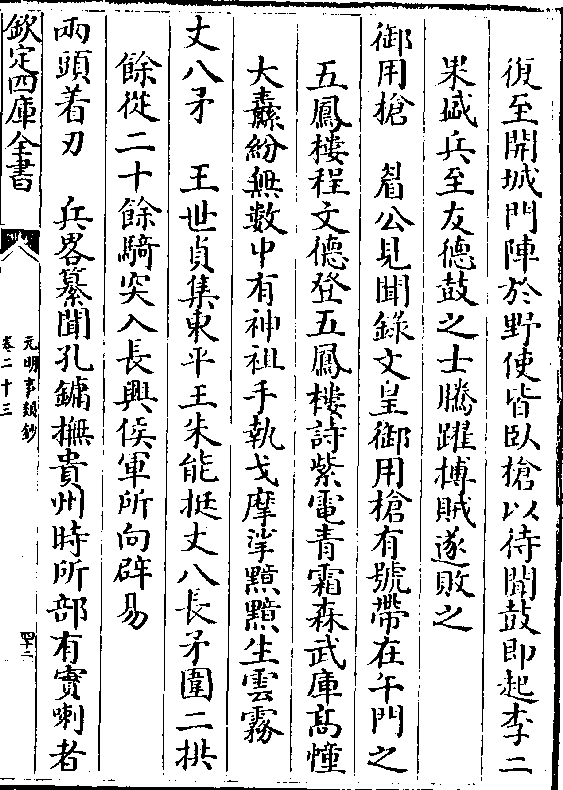 復至開城門陣於野使皆臥槍以待聞鼓即起李二
果盛兵至友德鼓之士騰躍搏賊遂敗之
御用槍 眉公見聞錄文皇御用槍有號帶在午門之
五鳳樓程文德登五鳳樓詩紫電青霜森武庫髙幢
大纛紛無數中有神祖手執戈摩挲黯黯生雲霧
丈八矛 王世貞集東平王朱能挺丈八長矛圍二拱
餘從二十餘騎突入長興侯軍所向辟易
兩頭着刃 兵畧纂聞孔鏞撫貴州時所部有實喇者
欽定四庫全書
元明事類鈔
卷二十三
四十二